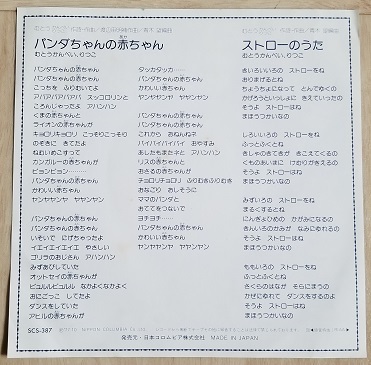 パンダちゃんの赤ちゃん
むとうかんぺい、りつこ
パンダちゃんの赤ちゃん
パンダちゃんの赤ちゃん
こっちを ふりむいてよ
アパパアパパパ スッコロリンと
ころんじゃったよ アハハン
くまの赤ちゃんと
ライオンの赤ちゃんが
キョロリキョロリ こっそりこっそり
のぞきに きてたよ
ねむいめこすって
カンガルーの赤ちゃんが
ピョンピョン……
パンダちゃんの赤ちゃん
かわいい赤ちゃん
ヤンヤヤンヤ ヤヤンヤン
パンダちゃんの赤ちゃん
パンダちゃんの赤ちゃん
いそいで にげちゃったよ
イエイエイエイエ やさしい
ゴリラのおじさん アハハン
みずあびしていた
オットセイの赤ちゃんが
ピュルルピュルル なかよくなかよく
おにごっこ してたよ
ダンスをしていた
アヒルの赤ちゃんが
タッカタッカ……
パンダちゃんの赤ちゃん
かわいい赤ちゃん
ヤンヤヤンヤ ヤヤンヤン
パンダちゃんの赤ちゃん
パンダちゃんの赤ちゃん
これから おねんねネ
バイバイバイバイ おやすみ
あしたもまたネと アハハン
リスの赤ちゃんと
おさるの赤ちゃんが
チョロリチョロリ ふりむきふりむき
おなごり おしそうに
ママのパンダと
おててをつないで
ヨチヨチ……
パンダちゃんの赤ちゃん
かわいい赤ちゃん
ヤンヤヤンヤ ヤヤンヤン
ストローのうた
むとうかんぺい、りつこ
きいろいいろの ストローをね
おりまげるとね
ちょうちょになって とんでゆくの
かげろうといっしょに きえていったの
そうよ ストローはね
まほうつかいなの
しろいいろの ストローをね
ふっとふくとね
きしゃのきてきが きこえてくるの
くものあいまに けむりがきえるの
そうよ ストローはね
まほうつかいなの
みずいろの ストローをね
まるくするとね
にんぎょひめの かがみになるの
きんいろのかみが なみにゆれるの
そうよ ストローはね
まほうつかいなの
ももいろの ストローをね
ふっとふくとね
さくらのはなが そらにまうの
かぜにゆれて ダンスをするのよ
そうよ ストローはね
まほうつかいなの
SCS-387
発売元・日本コロムビア株式会社 MADE IN JAPAN